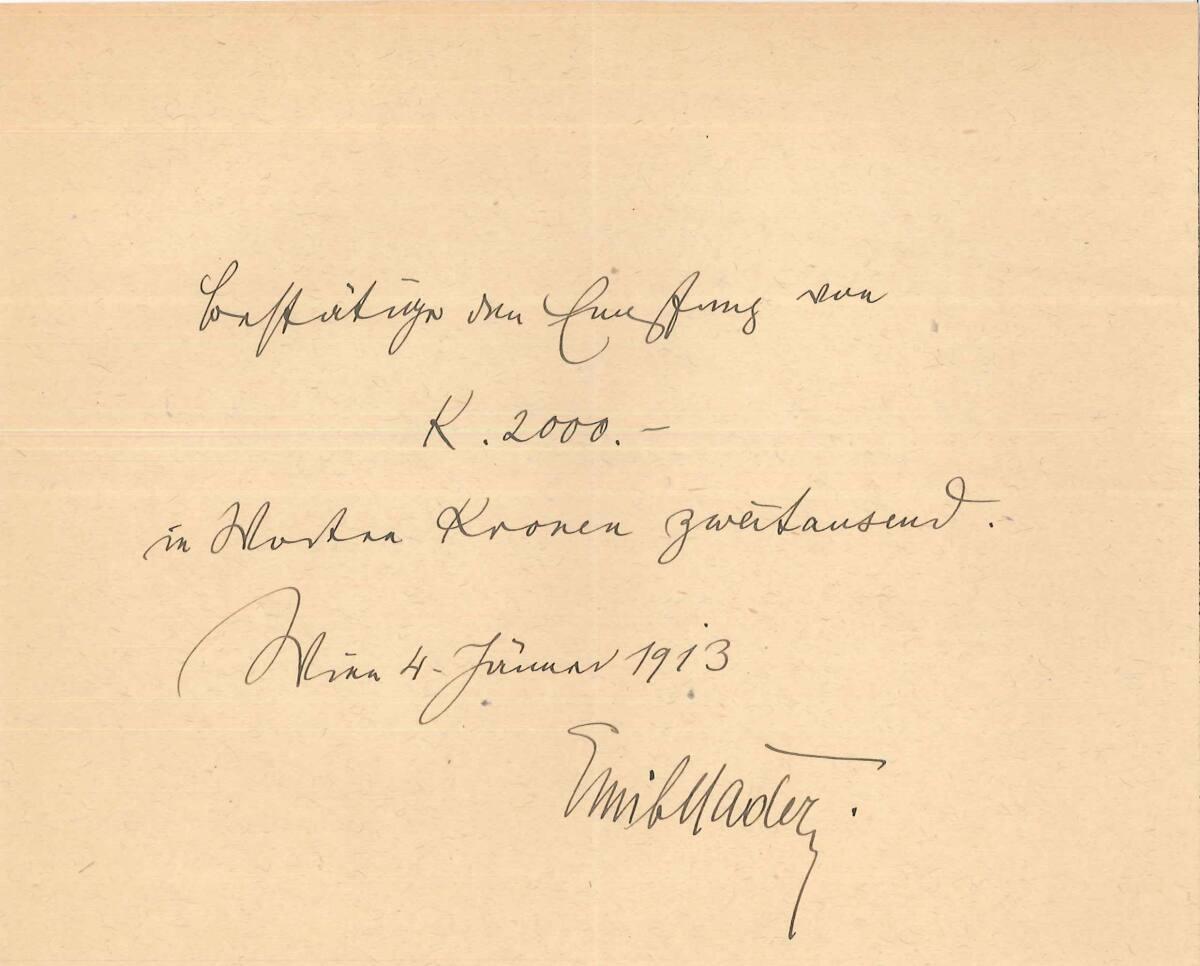 bestätige den Empfang von
K. 2000.–
in Worten Kronen zweitausend.
Wien 4. Jänner 1913
Emil Mader.